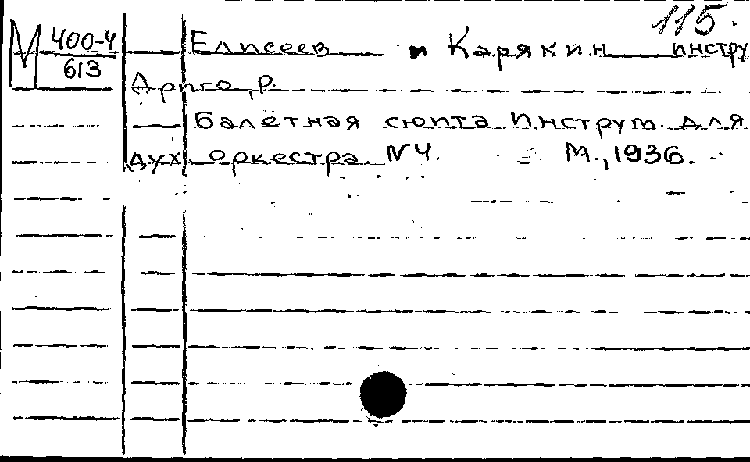 115.
М 400-4
613
Елисеев и Карякин инстру
Дриго, Р.
Балетная сюита Инструм. для
дух оркестра N4. М., 1936.